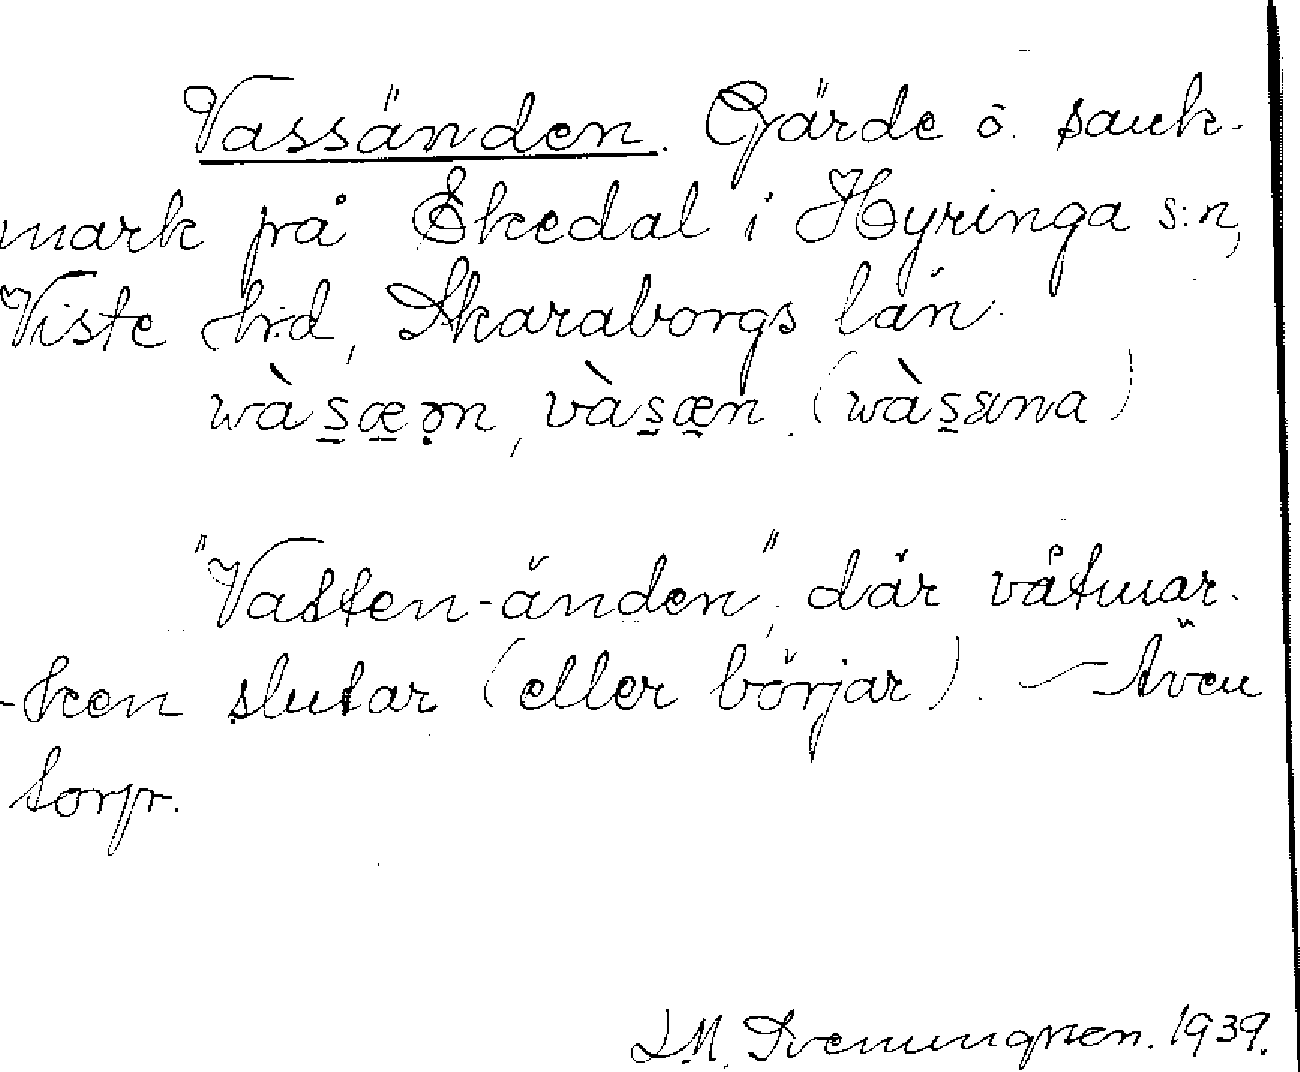 Vassänden. Gärde o. sank-
mark på Ekedal i Hyringa s:n,
Viste hrd, Skaraborgs län.
wàs̲æ̲ǝ̣n, vàs̲æ̲n. (wàs̲ana)
"Vatten-änden", där våtmar-
-ken slutar (eller börjar). — Även
torp.
J.M. Svenungsson. 1939.